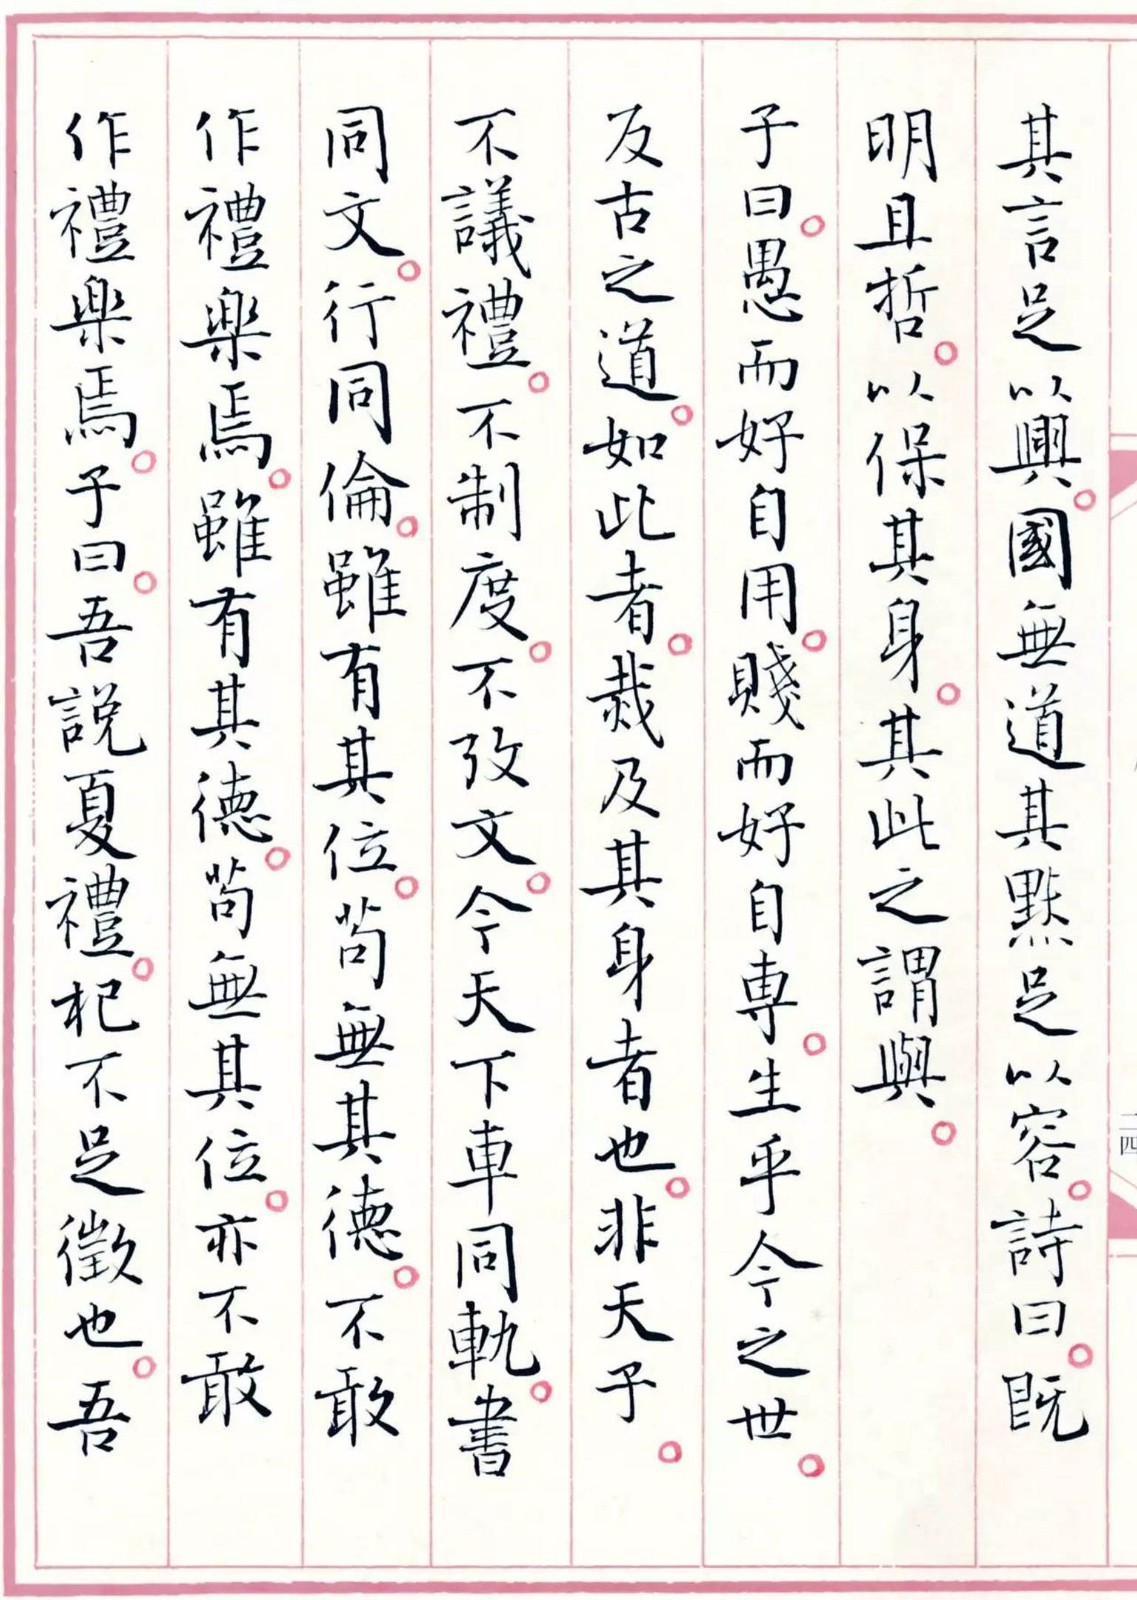 其言足以興。國無道其黙足以容。詩曰。既
明且哲。以保其身。其此之謂與。
子曰。愚而好自用。賤而好自専。生乎今之世。
反古之道。如此者。烖及其身者也。非天子。
不議禮。不制度。不攷文。今天下車同軌。書
同文。行同倫。雖有其位。苟無其德。不敢
作禮樂焉。雖有其德。苟無其位。亦不敢
作禮樂焉。子曰。吾説夏禮。杞不足徵也。吾